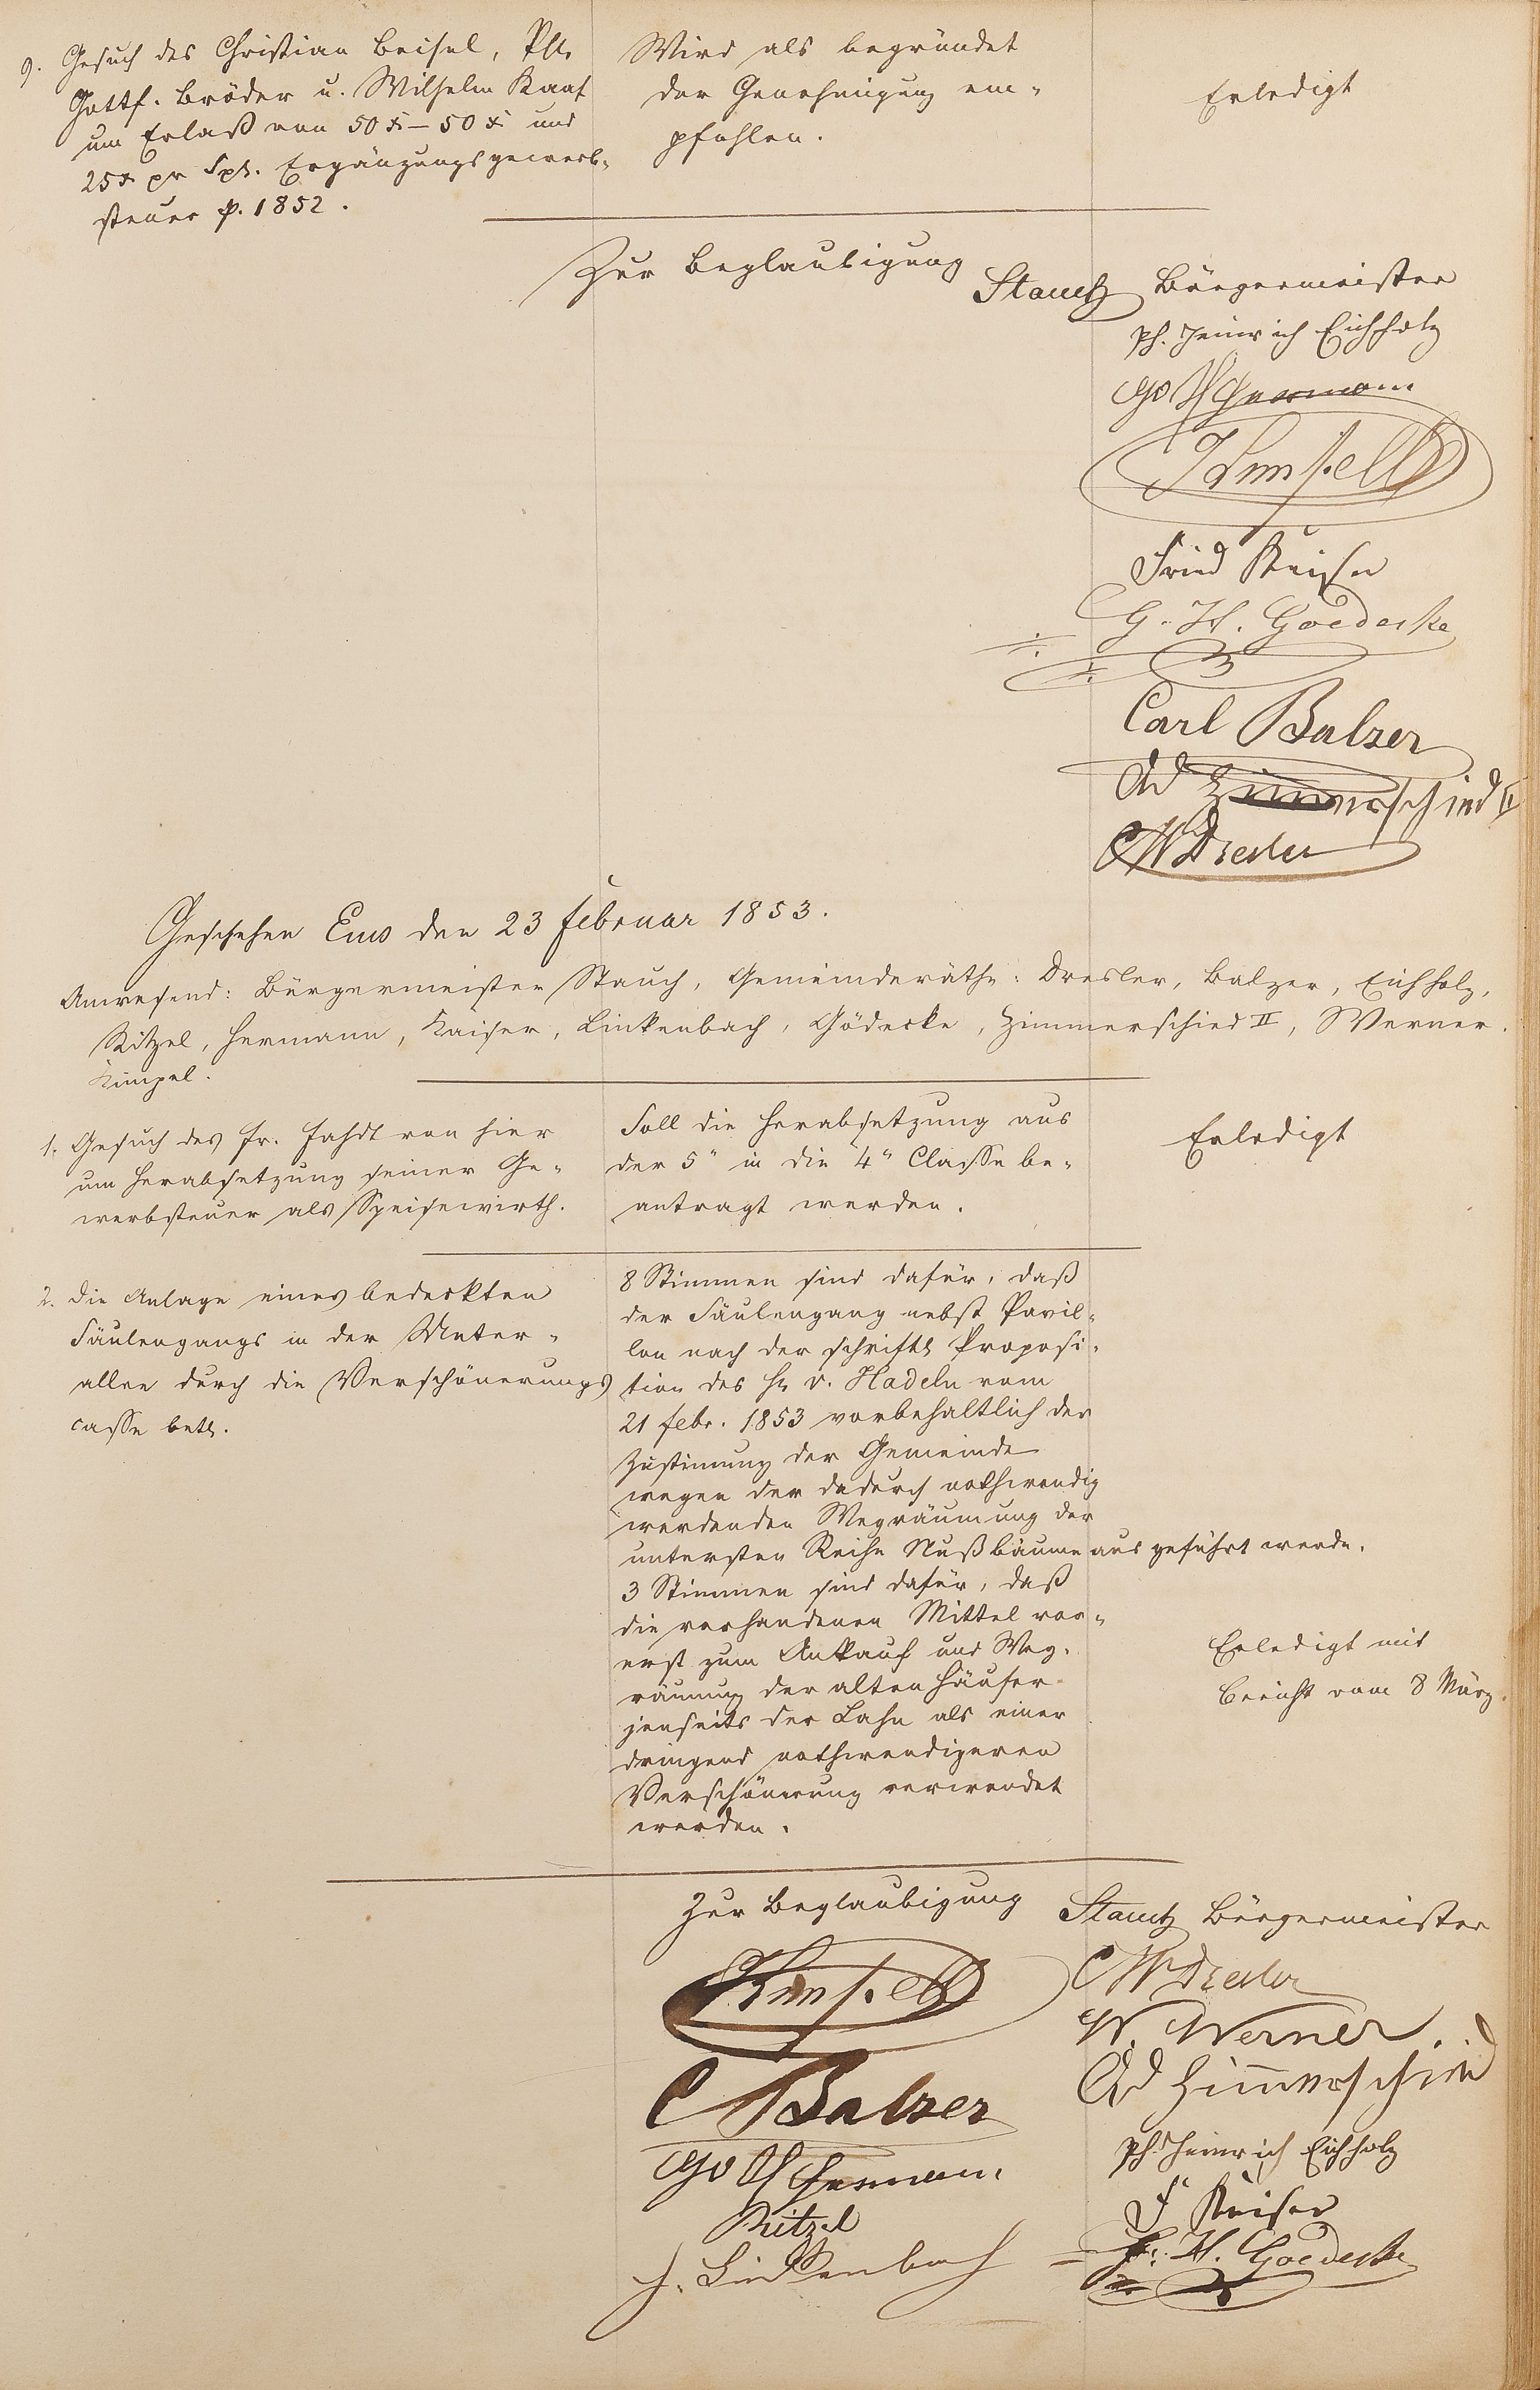 9. Gesuch des Christian Beisel, Phl.
Gottf. Bröder u. Wilhelm Kauf
um Erlaß von 50 x – 50 x und
25 x pr Spl. Ergänzungsgewerb-
steuer p. 1852.
Wird als begründet
der Genehmigung em-
pfohlen.
Erledigt
Zur Beglaubigung
Stauch Bürgermeister
Ph. Heinrich Eichholz
Hermann
Kimpell
Fried Keiser
G. H. Goedecke
Carl Balzer
Ad Zimmerschied II
CW Dresler
Geschehen Ems den 23 Februar 1853.
Anwesend: Bürgermeister Stauch, Gemeinderäthe: Dresler, Balzer, Eichholz,
Ritzel, Hermann, Kaiser, Linkenbach, Gödecke, Zimmerschied II, Werner.
Kimpel.
1. Gesuch des Fr. Fahdt von hier
um Herabsetzung seiner Ge-
werbsteuer als Speisewirth.
Soll die Herabsetzung aus
der 5" in die 4" Classe be-
antragt werden.
Erledigt
2. Die Anlage eines bedeckten
Säulengangs in der Unter-
allee durch die Verschönerungs
casse betr.
8 Stimmen sind dafür, daß
der Säulengang nebst Pavil-
lon nach der schriftl. Proposi-
tion des Hr v. Hadeln vom
21 Febr. 1853 vorbehaltlich der
Zustimmung der Gemeinde
wegen der dadurch nothwendig
werdenden Wegräumung der
untersten Reihe Nußbäume ausgeführt werde.
3 Stimmen sind dafür, daß
die vorhandenen Mittel vor-
erst zum Ankauf und Weg-
räumung der alten Häuser
jenseits der Lahn als einer
dringend nothwendigeren
Verschönerung verwendet
werden.
Erledigt mit
Bericht vom 8 März.
Zur Beglaubigung
Stauch Bürgermeister
Kimpell
C Balzer
Hermann
Ritzel
J. Linkenbach
CW Dresler
W. Werner
Ad Zimmerschied
Ph. Heinrich Eichholz
F Keiser
G. H. Goedecke